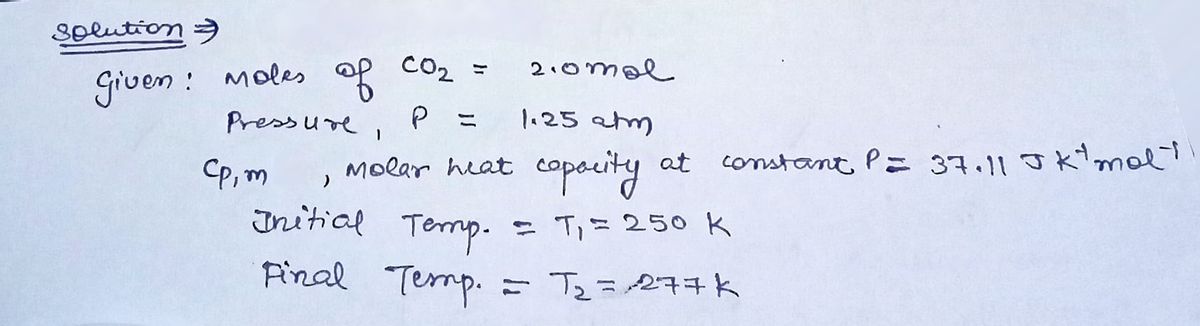 Solution ⇒
Given : Moles of CO₂ = 2.0 mol
Pressure, P = 1.25 atm
Cp,m , Molar heat capacity at constant P = 37.11 J K⁻¹ mol⁻¹
Initial Temp. = T₁ = 250 K
Final Temp. = T₂ = 277 K